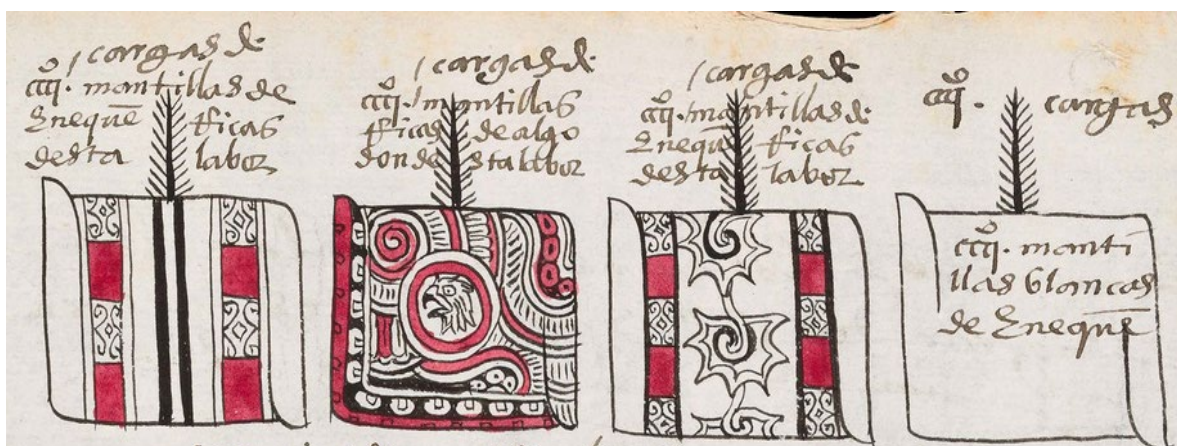 cargas de
cccc̊. mantillas de
Enequē rricas
desta labor
cargas de
cccc̊. mantillas
rricas de algo
don desta labor
cargas de
cccc̊. mantillas de
Enequē rricas
desta labor
cccc̊. cargas
cccc̊. manti
llas blancas
de Enequē